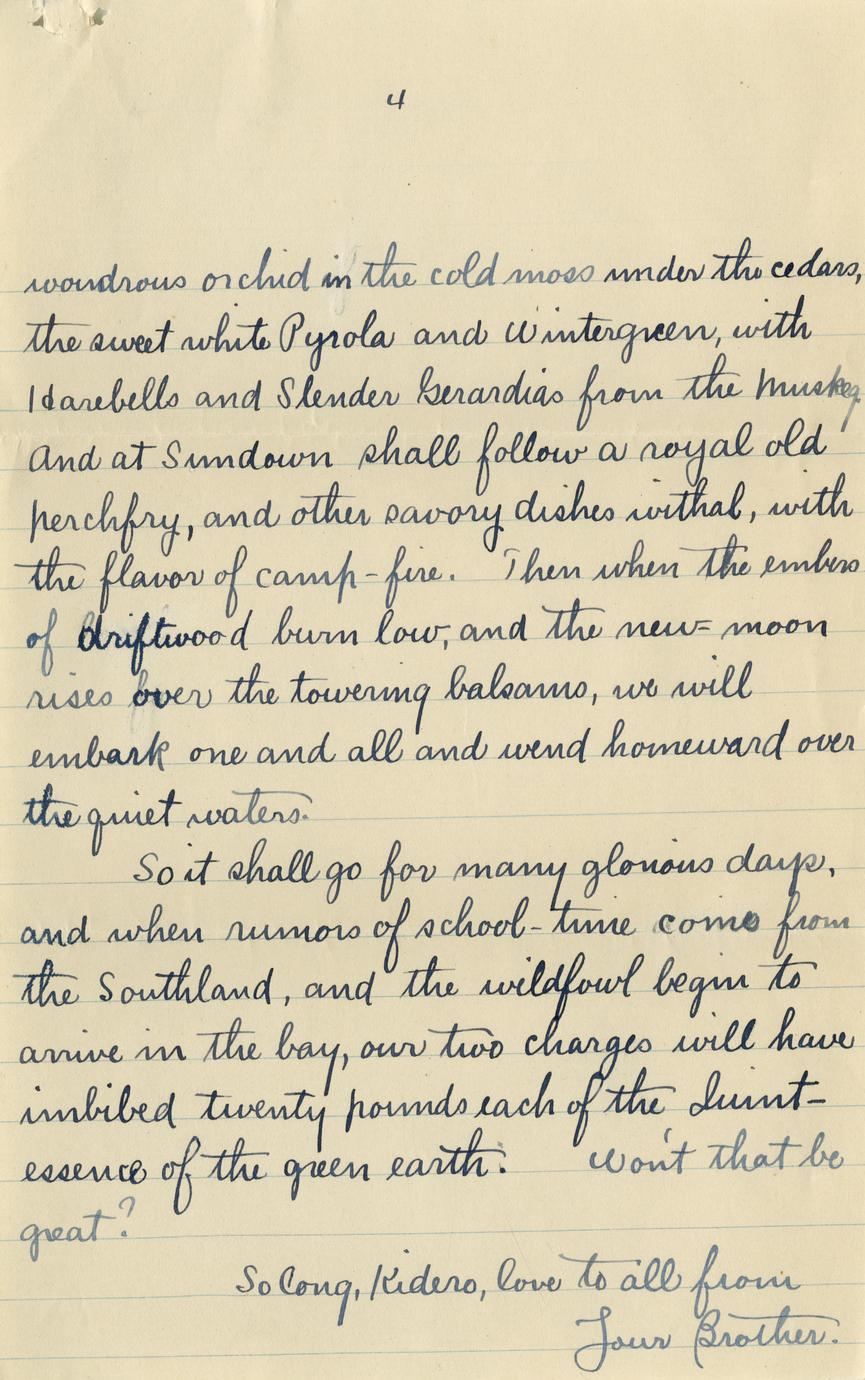 4
wondrous orchid in the cold moss under the cedars,
the sweet white Pyrola and Wintergreen, with
Harebells and Slender Gerardias from the Muskeg.
And at Sundown shall follow a royal old
perchfry, and other savory dishes withal, with
the flavor of camp-fire. Then when the embers
of driftwood burn low, and the new=moon
rises over the towering balsams, we will
embark one and all and wend homeward over
the quiet waters.
So it shall go for many glorious days,
and when rumors of school-time come from
the Southland, and the wildfowl begin to
arrive in the bay, our two charges will have
imbibed twenty pounds each of the Quint-
essence of the green earth. Won't that be
great?
So long, Kidero, love to all from
Your Brother.